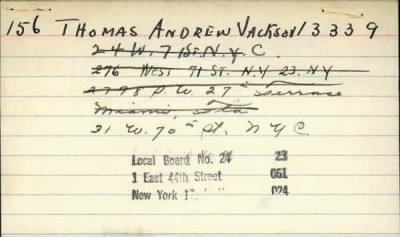 156 THOMAS ANDREW VACKSON 13339
24 W. 7 N.Y C.
276 WEST 71 ST. N.Y 23. N.Y
W. 27th Terrace
Miami, Fla
21 W. 70th St, N Y C
Local Board No. 24 23
1 East 44th Street 061
New York 024